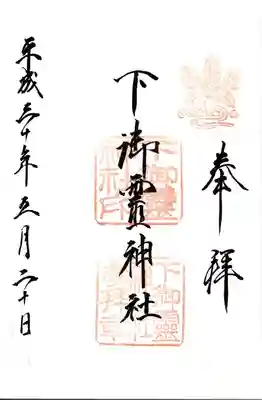 奉拝
下御霊神社
平成三十年五月二十日